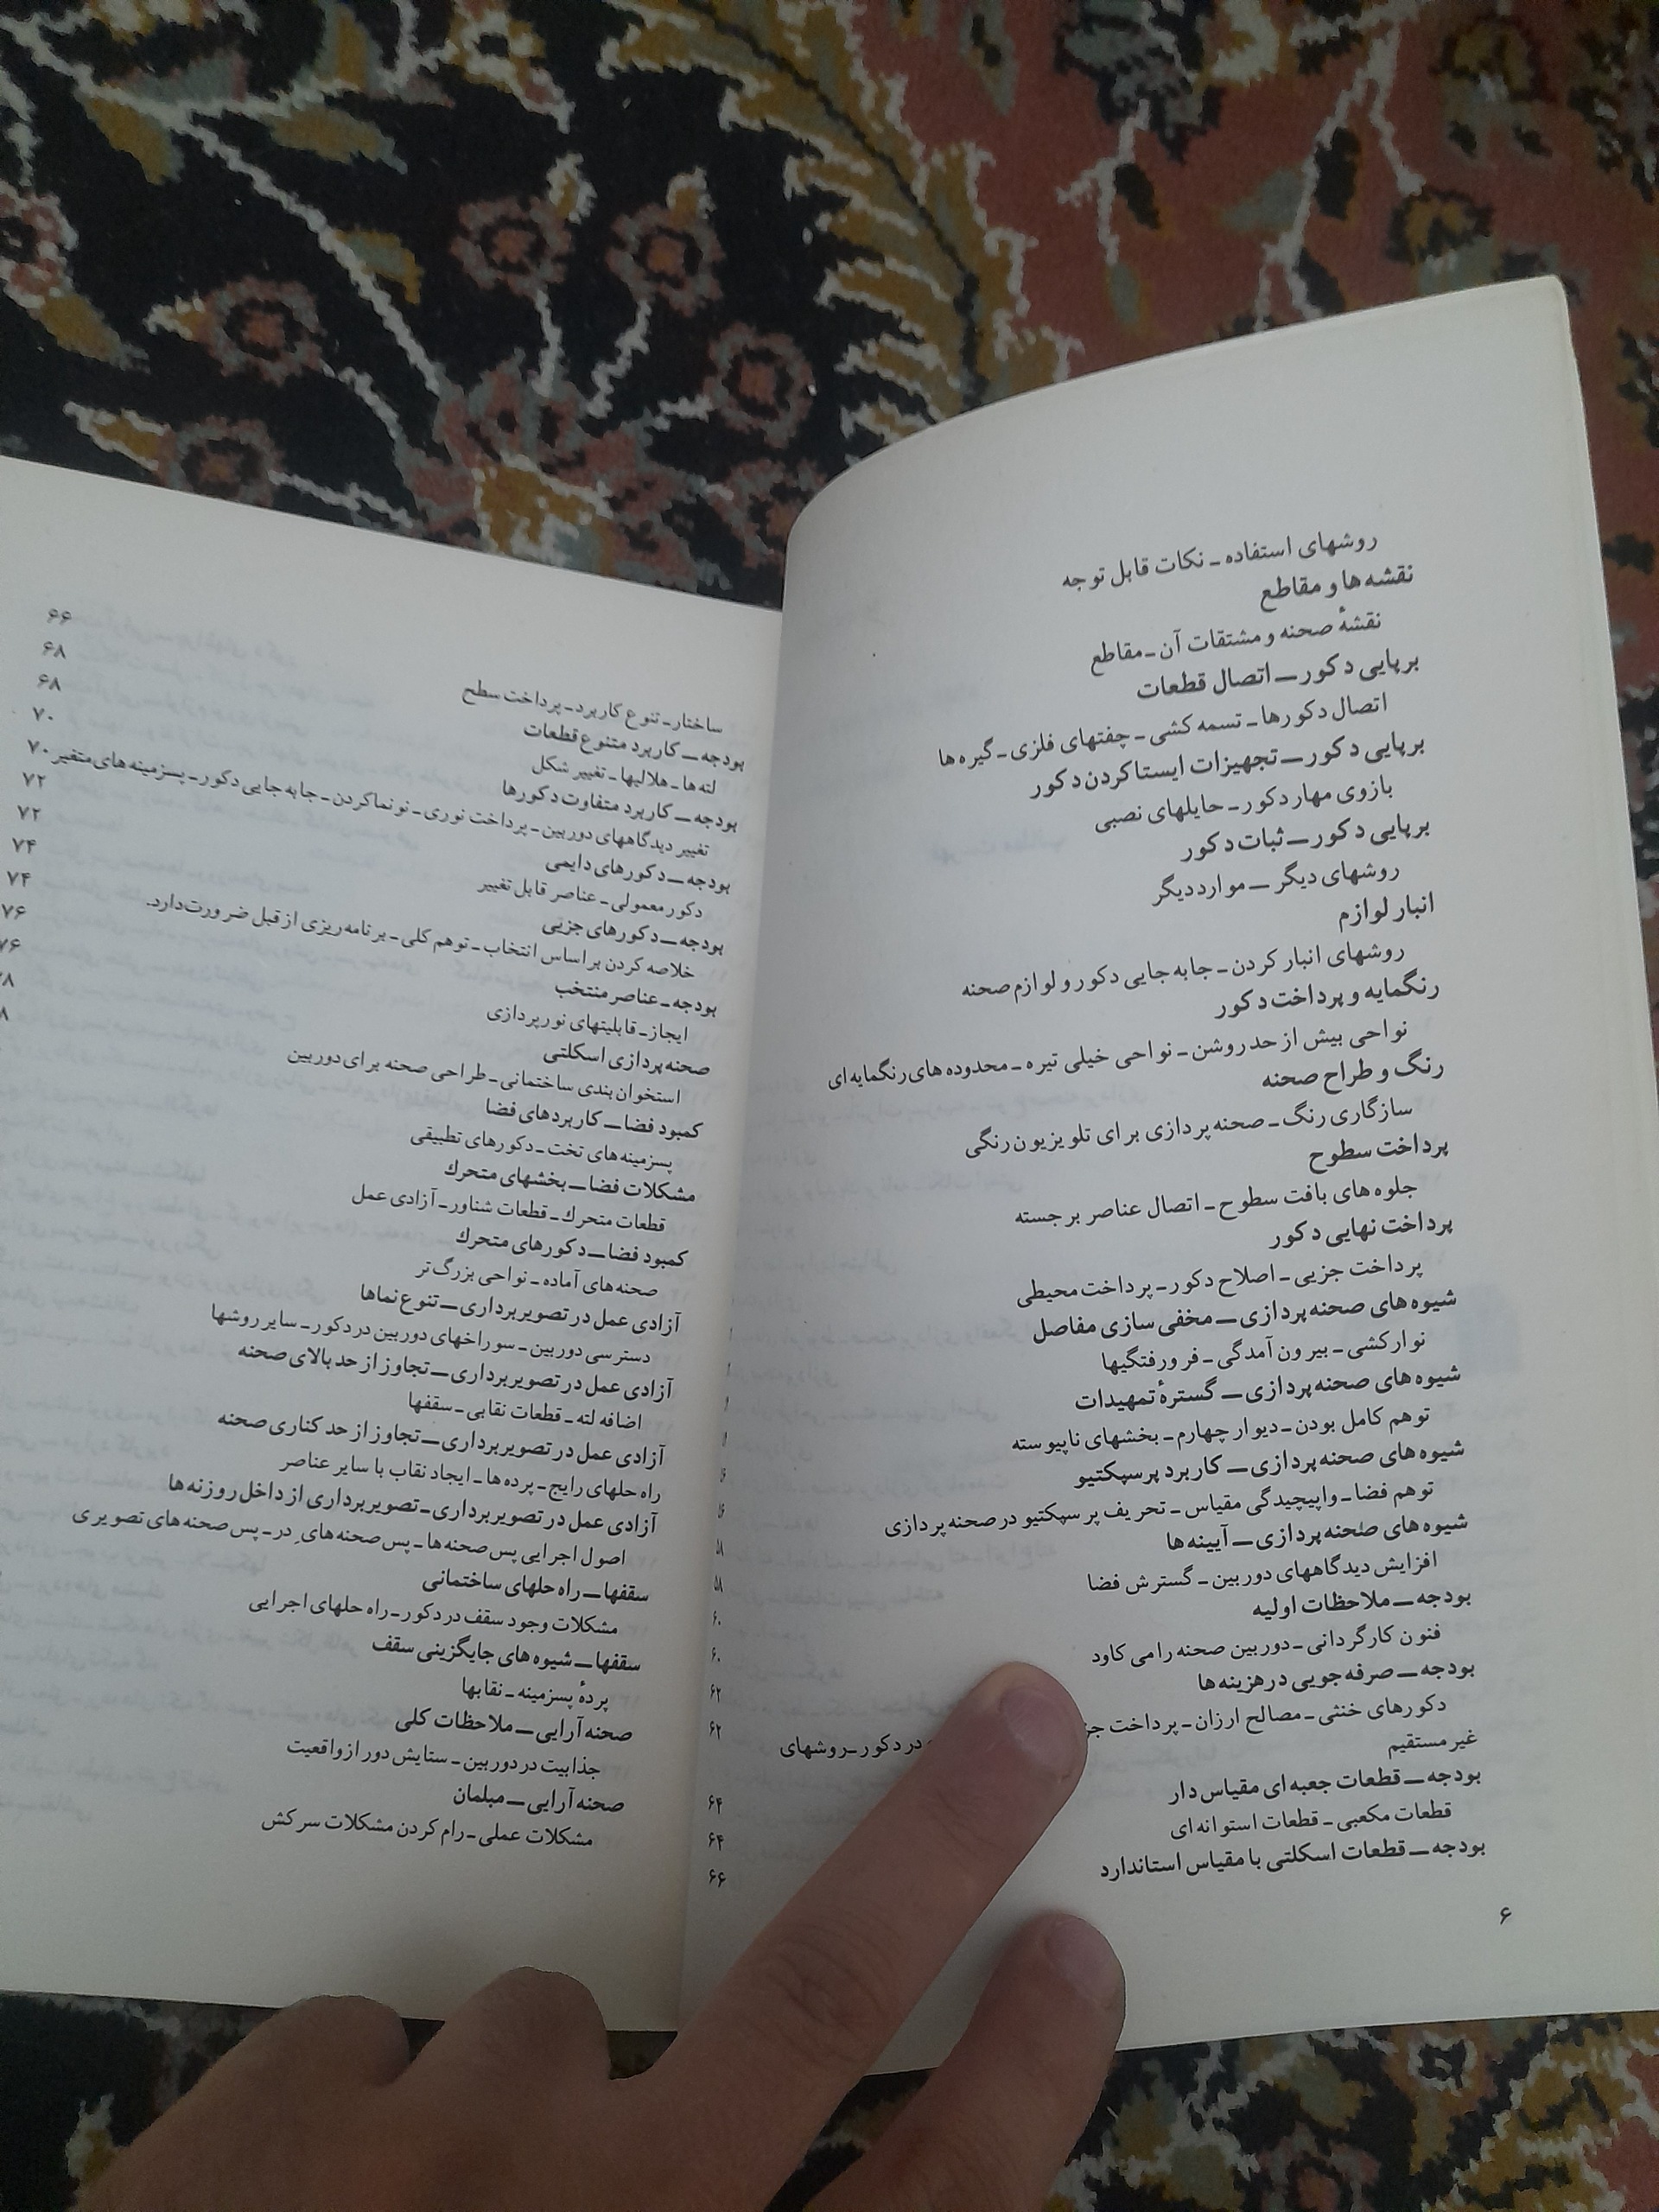 روشهای استفاده ـ نکات قابل توجه
نقشه ها و مقاطع
نقشهٔ صحنه و مشتقات آن ـ مقاطع
برپایی دکور ـ اتصال قطعات
اتصال دکورها ـ تسمه کشی ـ چفتهای فلزی ـ گیره ها
برپایی دکور ـ تجهیزات ایستاکردن دکور
بازوی مهار دکور ـ حایلهای نصبی
برپایی دکور ـ ثبات دکور
روشهای دیگر ـ موارد دیگر
انبار لوازم
روشهای انبار کردن ـ جابه جایی دکور و لوازم صحنه
رنگمایه و پرداخت دکور
نواحی بیش از حد روشن ـ نواحی خیلی تیره ـ محدوده های رنگمایه ای
رنگ و طراح صحنه
سازگاری رنگ ـ صحنه پردازی برای تلویزیون رنگی
پرداخت سطوح
جلوه های بافت سطوح ـ اتصال عناصر برجسته
پرداخت نهایی دکور
پرداخت جزیی ـ اصلاح دکور ـ پرداخت محیطی
شیوه های صحنه پردازی ـ مخفی سازی مفاصل
نوارکشی ـ بیرون آمدگی ـ فرورفتگیها
شیوه های صحنه پردازی ـ گسترهٔ تمهیدات
توهم کامل بودن ـ دیوار چهارم ـ بخشهای ناپیوسته
شیوه های صحنه پردازی ـ کاربرد پرسپکتیو ۵۶
توهم فضا ـ واپیچیدگی مقیاس ـ تحریف پرسپکتیو در صحنه پردازی ۵۶
شیوه های صحنه پردازی ـ آیینه ها ۵۸
افزایش دیدگاههای دوربین ـ گسترش فضا ۵۸
بودجه ـ ملاحظات اولیه ۶۰
فنون کارگردانی ـ دوربین صحنه را می کاود ۶۰
بودجه ـ صرفه جویی در هزینه ها ۶۲
دکورهای خنثی ـ مصالح ارزان ـ پرداخت در دکور ـ روشهای ۶۲
غیر مستقیم
بودجه ـ قطعات جعبه ای مقیاس دار ۶۴
قطعات مکعبی ـ قطعات استوانه ای ۶۴
بودجه ـ قطعات اسکلتی با مقیاس استاندارد ۶۶
۶
ساختار ـ تنوع کاربرد ـ پرداخت سطح ۶۶
بودجه ـ کاربرد متنوع قطعات ۶۸
لته ها ـ هلالیها ـ تغییر شکل ۶۸
بودجه ـ کاربرد متفاوت دکورها ۷۰
تغییر دیدگاههای دوربین ـ پرداخت نوری ـ نونماکردن ـ جابه جایی دکور ـ پسزمینه های متغیر ۷۰
بودجه ـ دکورهای دایمی ۷۲
دکور معمولی ـ عناصر قابل تغییر ۷۲
بودجه ـ دکورهای جزیی ۷۴
خلاصه کردن براساس انتخاب ـ توهم کلی ـ برنامه ریزی از قبل ضرورت دارد. ۷۴
بودجه ـ عناصر منتخب ۷۶
ایجاز ـ قابلیتهای نورپردازی ۷۶
صحنه پردازی اسکلتی
استخوان بندی ساختمانی ـ طراحی صحنه برای دوربین
کمبود فضا ـ کاربردهای فضا
پسزمینه های تخت ـ دکورهای تطبیقی
مشکلات فضا ـ بخشهای متحرك
قطعات متحرك ـ قطعات شناور ـ آزادی عمل
کمبود فضا ـ دکورهای متحرك
صحنه های آماده ـ نواحی بزرگ تر
آزادی عمل در تصویربرداری ـ تنوع نماها
دسترسی دوربین ـ سوراخهای دوربین در دکور ـ سایر روشها
آزادی عمل در تصویربرداری ـ تجاوز از حد بالای صحنه
اضافه لته ـ قطعات نقابی ـ سقفها
آزادی عمل در تصویربرداری ـ تجاوز از حد کناری صحنه
راه حلهای رایج ـ پرده ها ـ ایجاد نقاب با سایر عناصر
آزادی عمل در تصویربرداری ـ تصویربرداری از داخل روزنه ها
اصول اجرایی پس صحنه ها ـ پس صحنه هایِ در ـ پس صحنه های تصویری
سقفها ـ راه حلهای ساختمانی
مشکلات وجود سقف در دکور ـ راه حلهای اجرایی
سقفها ـ شیوه های جایگزینی سقف
پردهٔ پسزمینه ـ نقابها
صحنه آرایی ـ ملاحظات کلی
جذابیت در دوربین ـ ستایش دور از واقعیت
صحنه آرایی ـ مبلمان
مشکلات عملی ـ رام کردن مشکلات سرکش